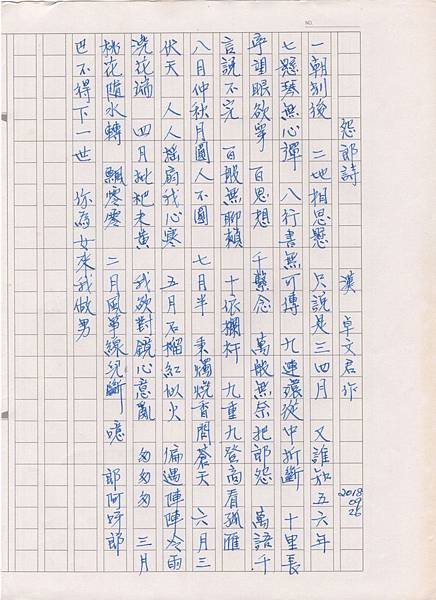 NO.
怨郎詩　漢　卓文君作
2018
09
26
一朝別後　二地相思懸　只說是三四月　又誰知五六年
七懸琴無心彈　八行書無可傳　九連環從中折斷　十里長
亭望眼欲穿　百思想　千繫念　萬般無奈把郎怨　萬語千
言說不完　百般無聊賴　十依欄杆　九重九登高看孤雁
八月仲秋月圓人不圓　七月半　秉燭燒香問蒼天　六月三
伏天　人人搖扇我心寒　五月石榴紅似火　偏遇陣陣冷雨
澆花端　四月枇杷未黃　我欲對鏡心意亂　匆匆匆　三月
桃花隨水轉　飄零零　二月風箏線兒斷　噫　郎阿呀郎
巴不得下一世　你為女來我做男